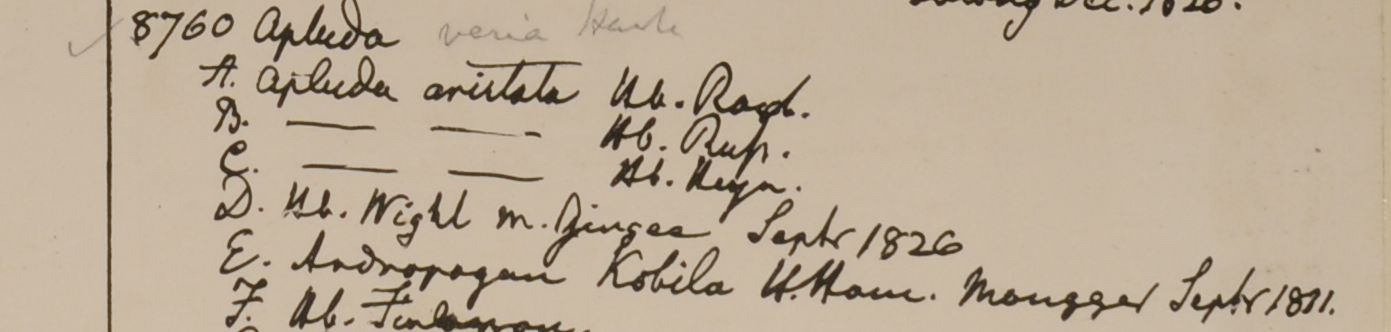 Dec. 1826.
8760 Apluda varia Hack
A. Apluda aristata Hb. Roxb.
B. — — Hb. Rup.
C. — — Hb. Heyn.
D. Hb. Wight m. Gingee Septr 1826
E. Andropogon Kobila H. Ham. Mongger Septr 1811.
F. Hb. Finlayson